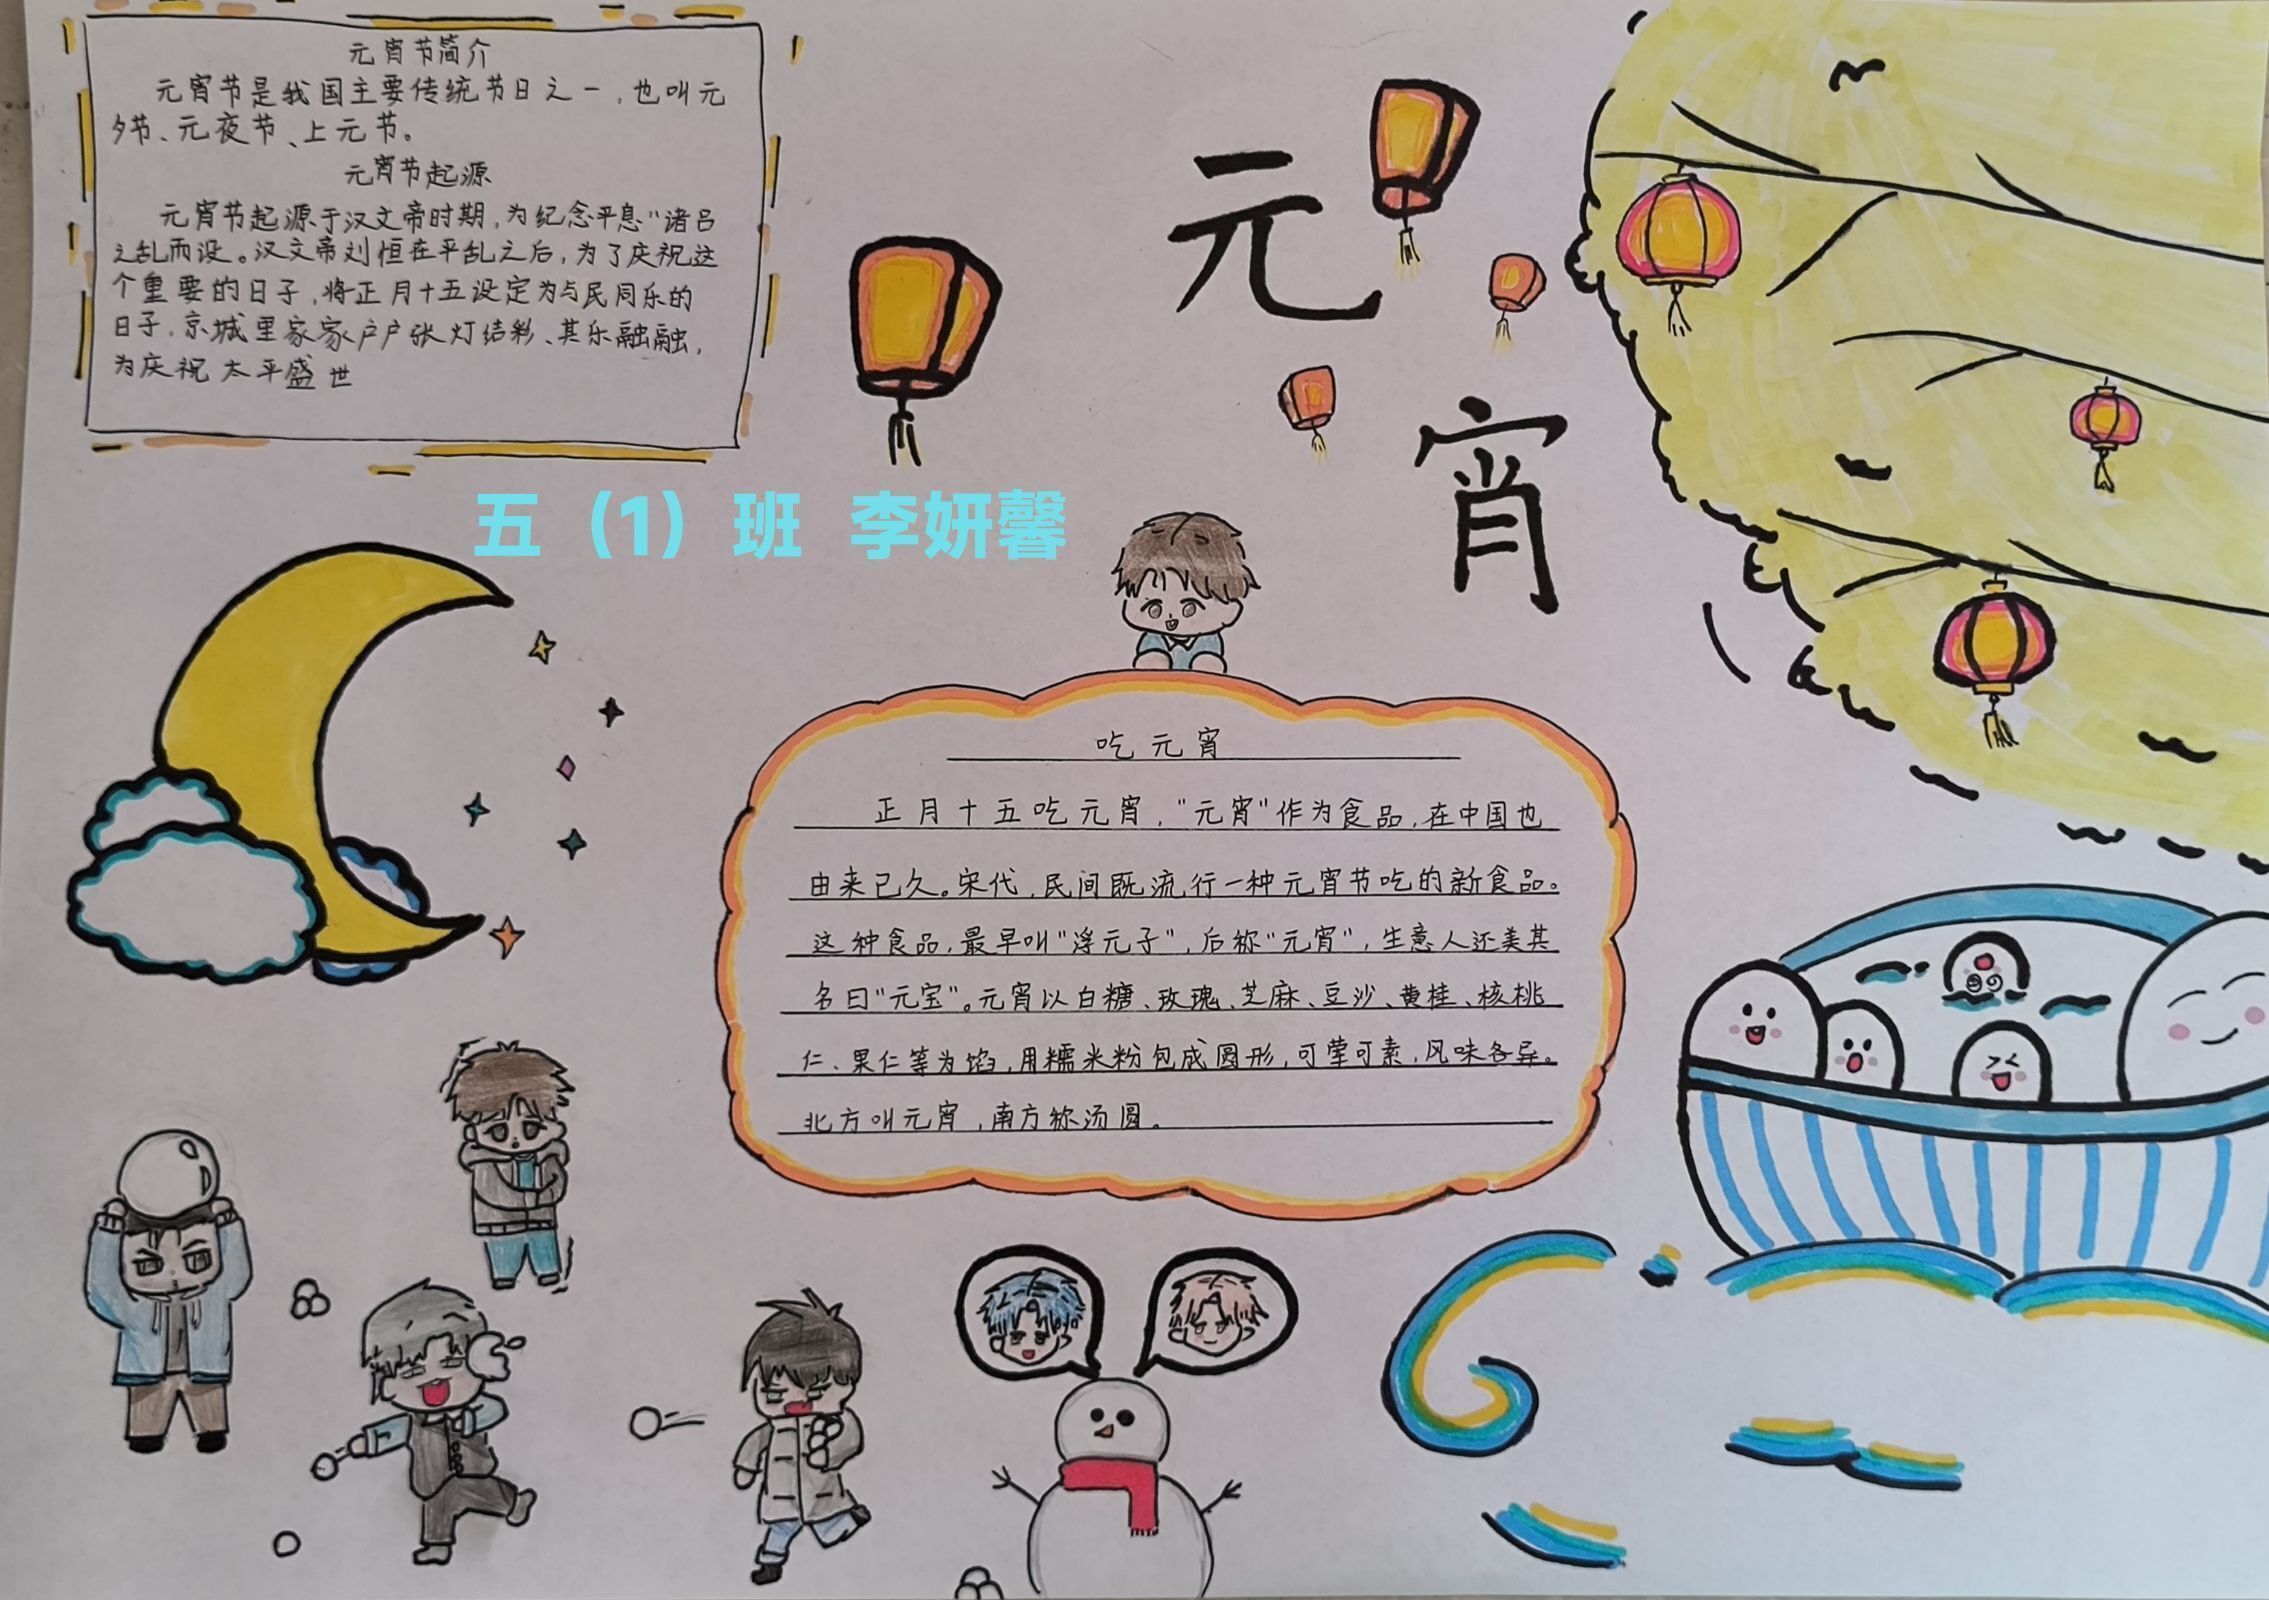 元宵节简介
元宵节是我国主要传统节日之一，也叫元
夕节、元夜节、上元节。
元宵节起源
元宵节起源于汉文帝时期，为纪念平息"诸吕
之乱而设。汉文帝刘恒在平乱之后，为了庆祝这
个重要的日子，将正月十五设定为与民同乐的
日子，京城里家家户户张灯结彩、其乐融融，
为庆祝太平盛世
元
宵
五（1）班 李妍馨
吃元宵
正月十五吃元宵，"元宵"作为食品，在中国也
由来已久。宋代，民间既流行一种元宵节吃的新食品。
这种食品，最早叫"浮元子"，后称"元宵"，生意人还美其
名曰"元宝"。元宵以白糖、玫瑰、芝麻、豆沙、黄桂、核桃
仁、果仁等为馅，用糯米粉包成圆形，可荤可素，风味各异。
北方叫元宵，南方称汤圆。